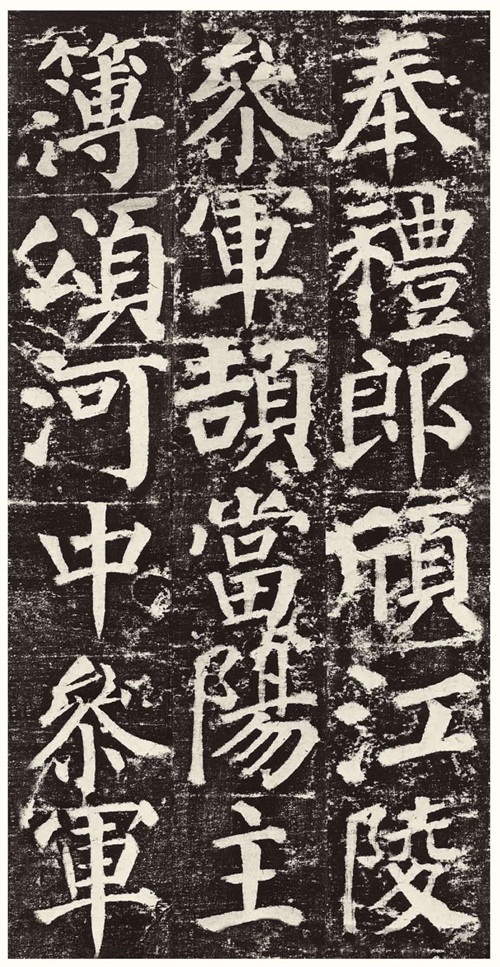 奉禮郎頎江陵
參軍頡當陽主
簿頌河中參軍